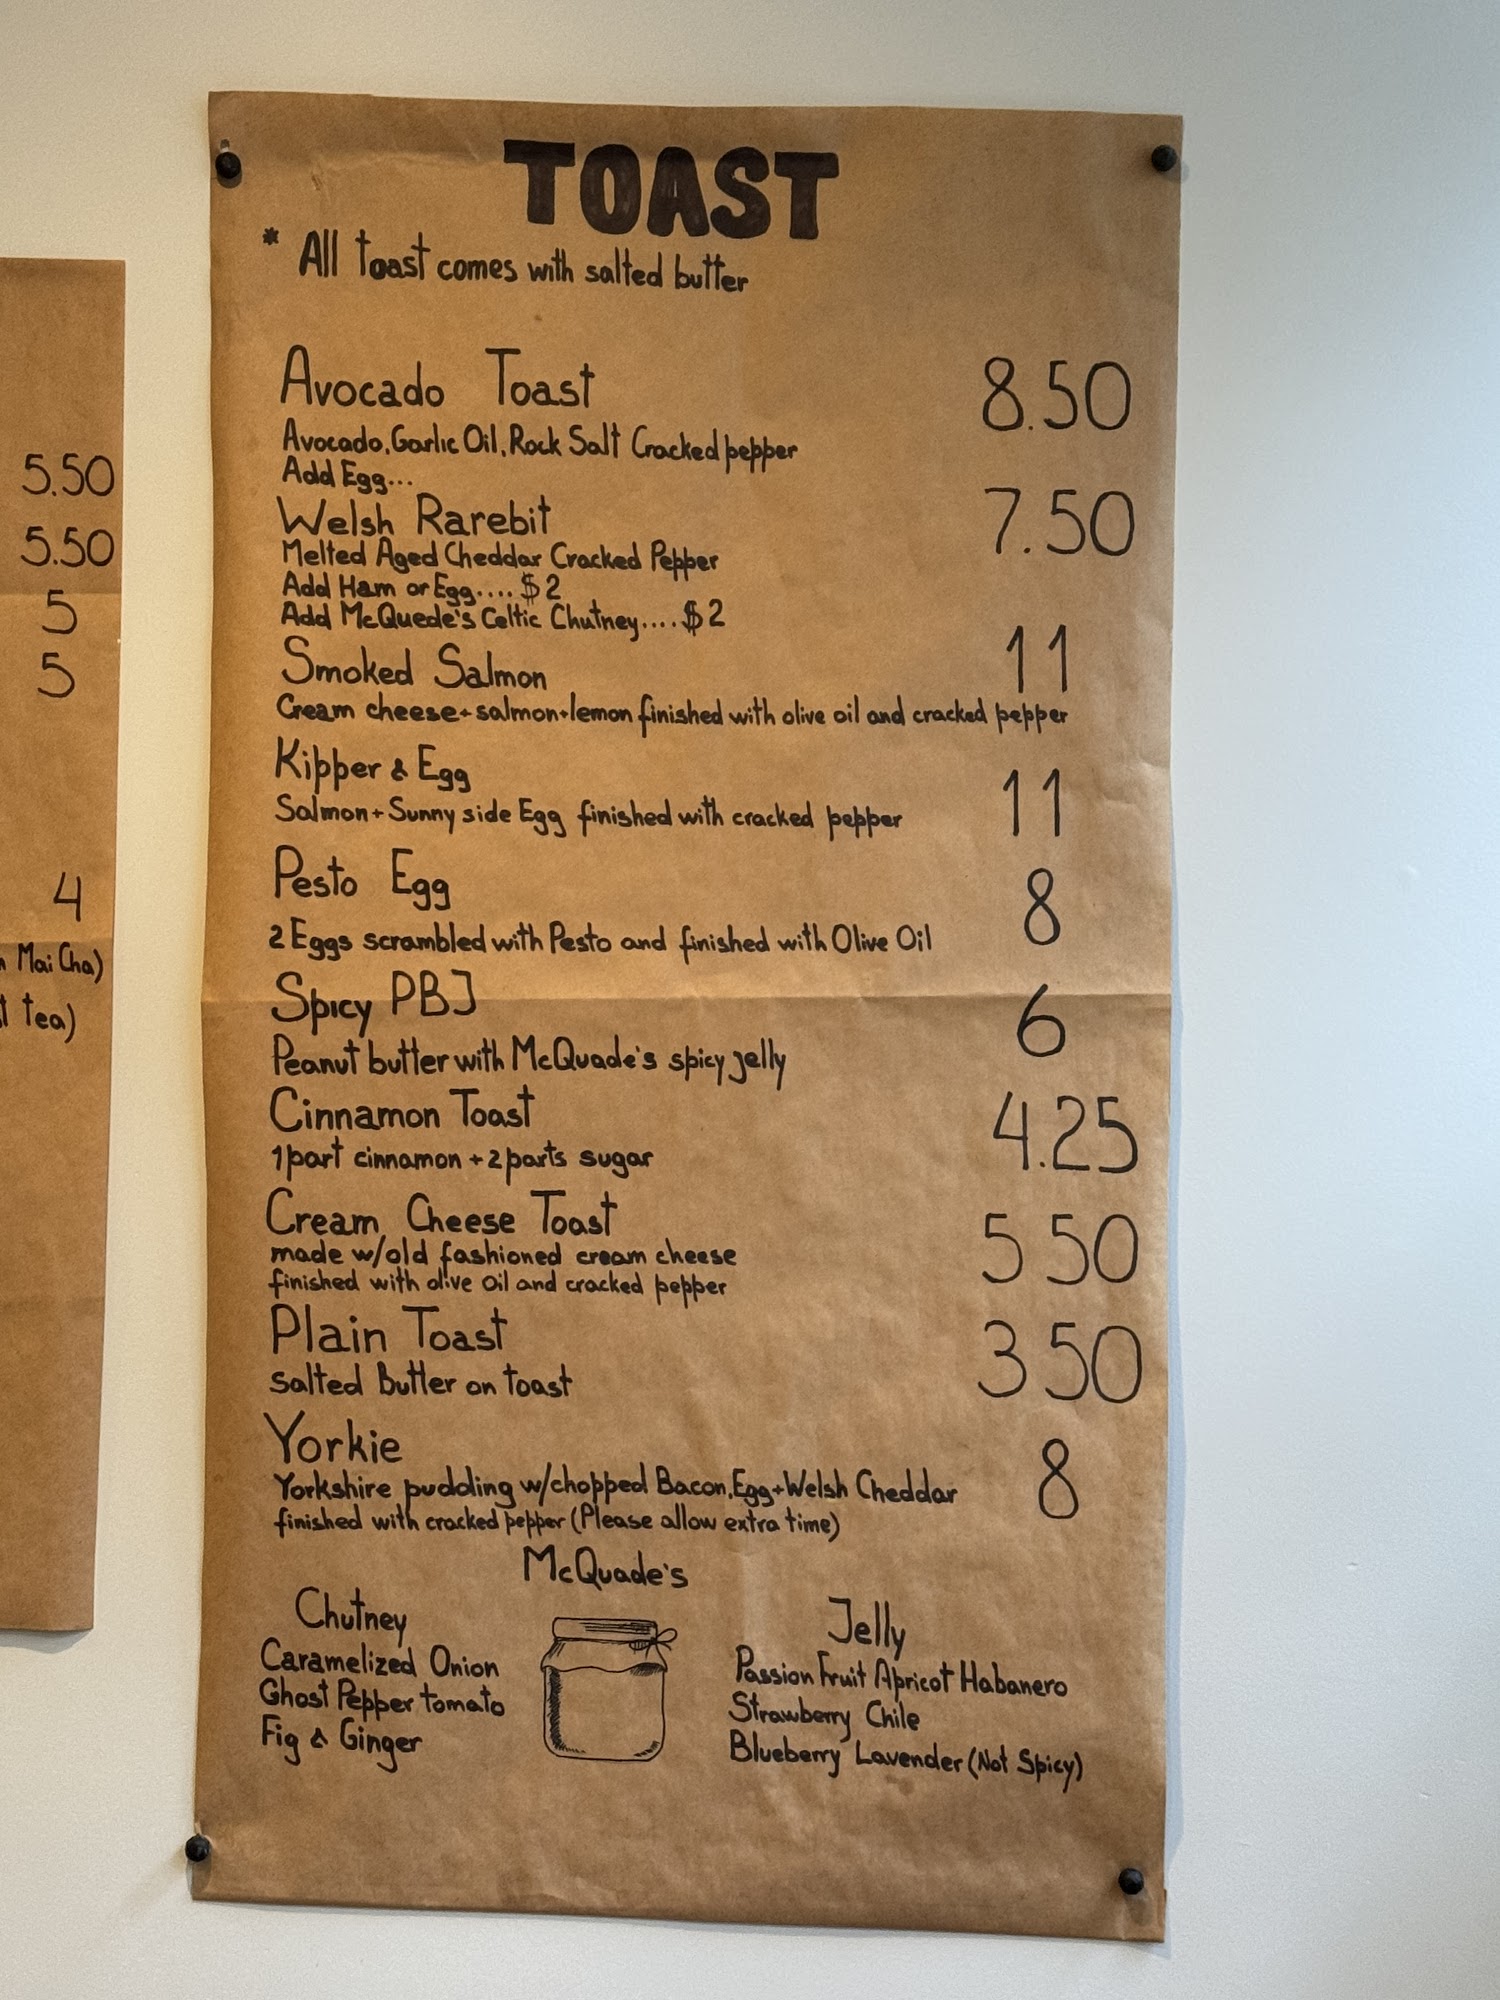 5.50
5.50
5
5
4
Mai Cha)
tea)
TOAST
* All toast comes with salted butter
Avocado Toast 8.50
Avocado, Garlic Oil, Rock Salt Cracked pepper
Add Egg...
Welsh Rarebit 7.50
Melted Aged Cheddar Cracked Pepper
Add Ham or Egg.... $2
Add McQuede's Celtic Chutney.... $2
Smoked Salmon 11
Cream cheese+salmon+lemon finished with olive oil and cracked pepper
Kipper & Egg 11
Salmon+Sunny side Egg finished with cracked pepper
Pesto Egg 8
2 Eggs scrambled with Pesto and finished with Olive Oil
Spicy PBJ 6
Peanut butter with McQuade's spicy jelly
Cinnamon Toast 4.25
1 part cinnamon + 2 parts sugar
Cream Cheese Toast 5 50
made w/old fashioned cream cheese
finished with olive oil and cracked pepper
Plain Toast 3 50
salted Butter on toast
Yorkie 8
Yorkshire pudding w/chopped Bacon, Egg+Welsh Cheddar
finished with cracked pepper (Please allow extra time)
McQuade's
Chutney
Caramelized Onion
Ghost Pepper tomato
Fig & Ginger
Jelly
Passion Fruit Apricot Habanero
Strawberry Chile
Blueberry Lavender (Not Spicy)